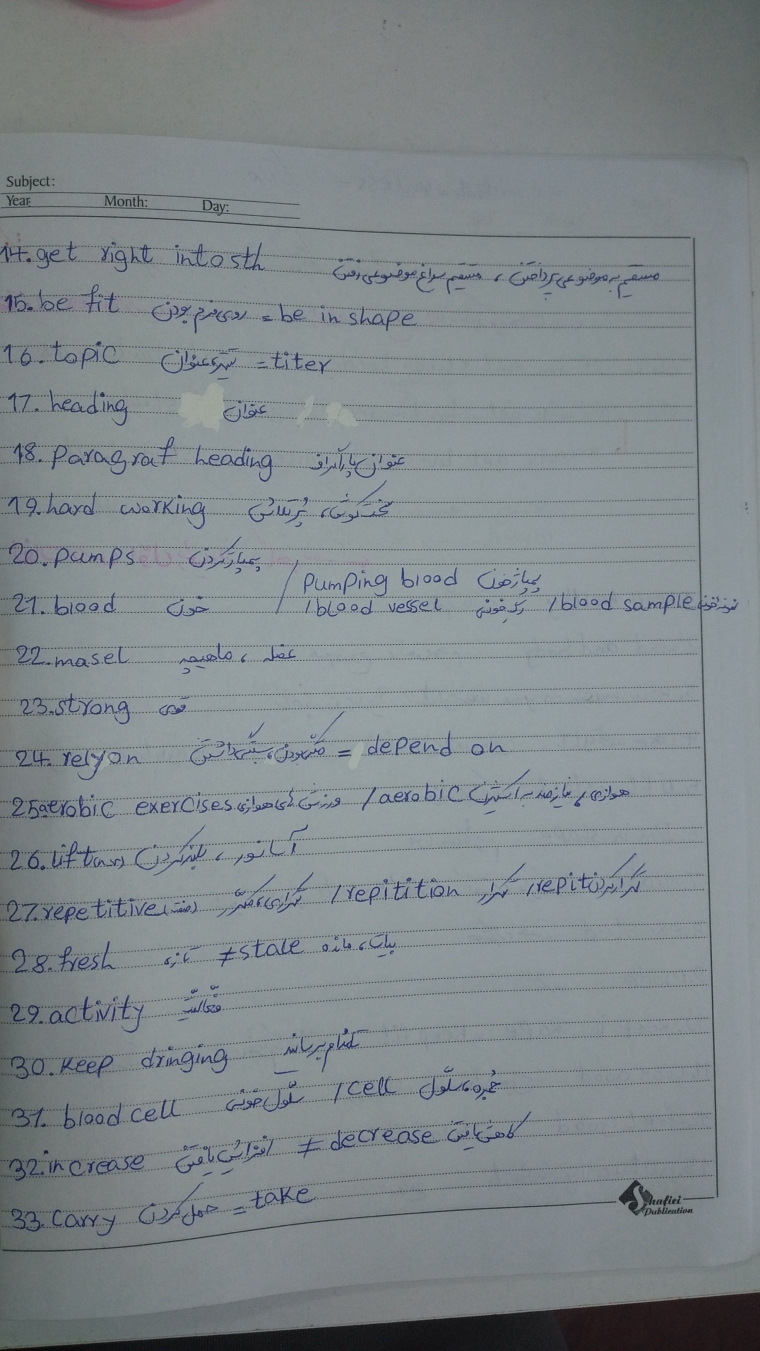 Subject:
Year: Month: Day:
14. get right into sth مستقیم به موضوعی پرداختن ، مستقیم سراغ موضوعی رفتن
15. be fit روی فرم بودن = be in shape
16. topic تیتر، عنوان = titer
17. heading عنوان
18. Paragraf heading عنوان پاراگراف
19. hard working سخت کوش، پُرتلاش
20. pumps پمپاژ کردن
/ Pumping blood پمپاژ خون
21. blood خون / blood vessel رگ خونی / blood sample نمونه خون
22. masel عضله ، ماهیچه
23. strong قوی
24. rely on متکی بودن، بستگی داشتن = depend on
25. aerobic exercises ورزش های هوازی / aerobic هوازی، نیازمند به اکسیژن
26. lift آسانور ، بلند کردن
27. repetitive (صفت) تکراری، مکرّر / repitition تکرار ، repit تکرار کردن
28. fresh تازه ≠ stale بیات، مانده
29. activity فعّالیّت
30. keep dringing
31. blood cell سلّول خونی / cell حُجره، سلّول
32. increase افزایش یافتن ≠ decrease کاهش یافتن
33. Carry حمل کردن = take
Shafiei
Publication